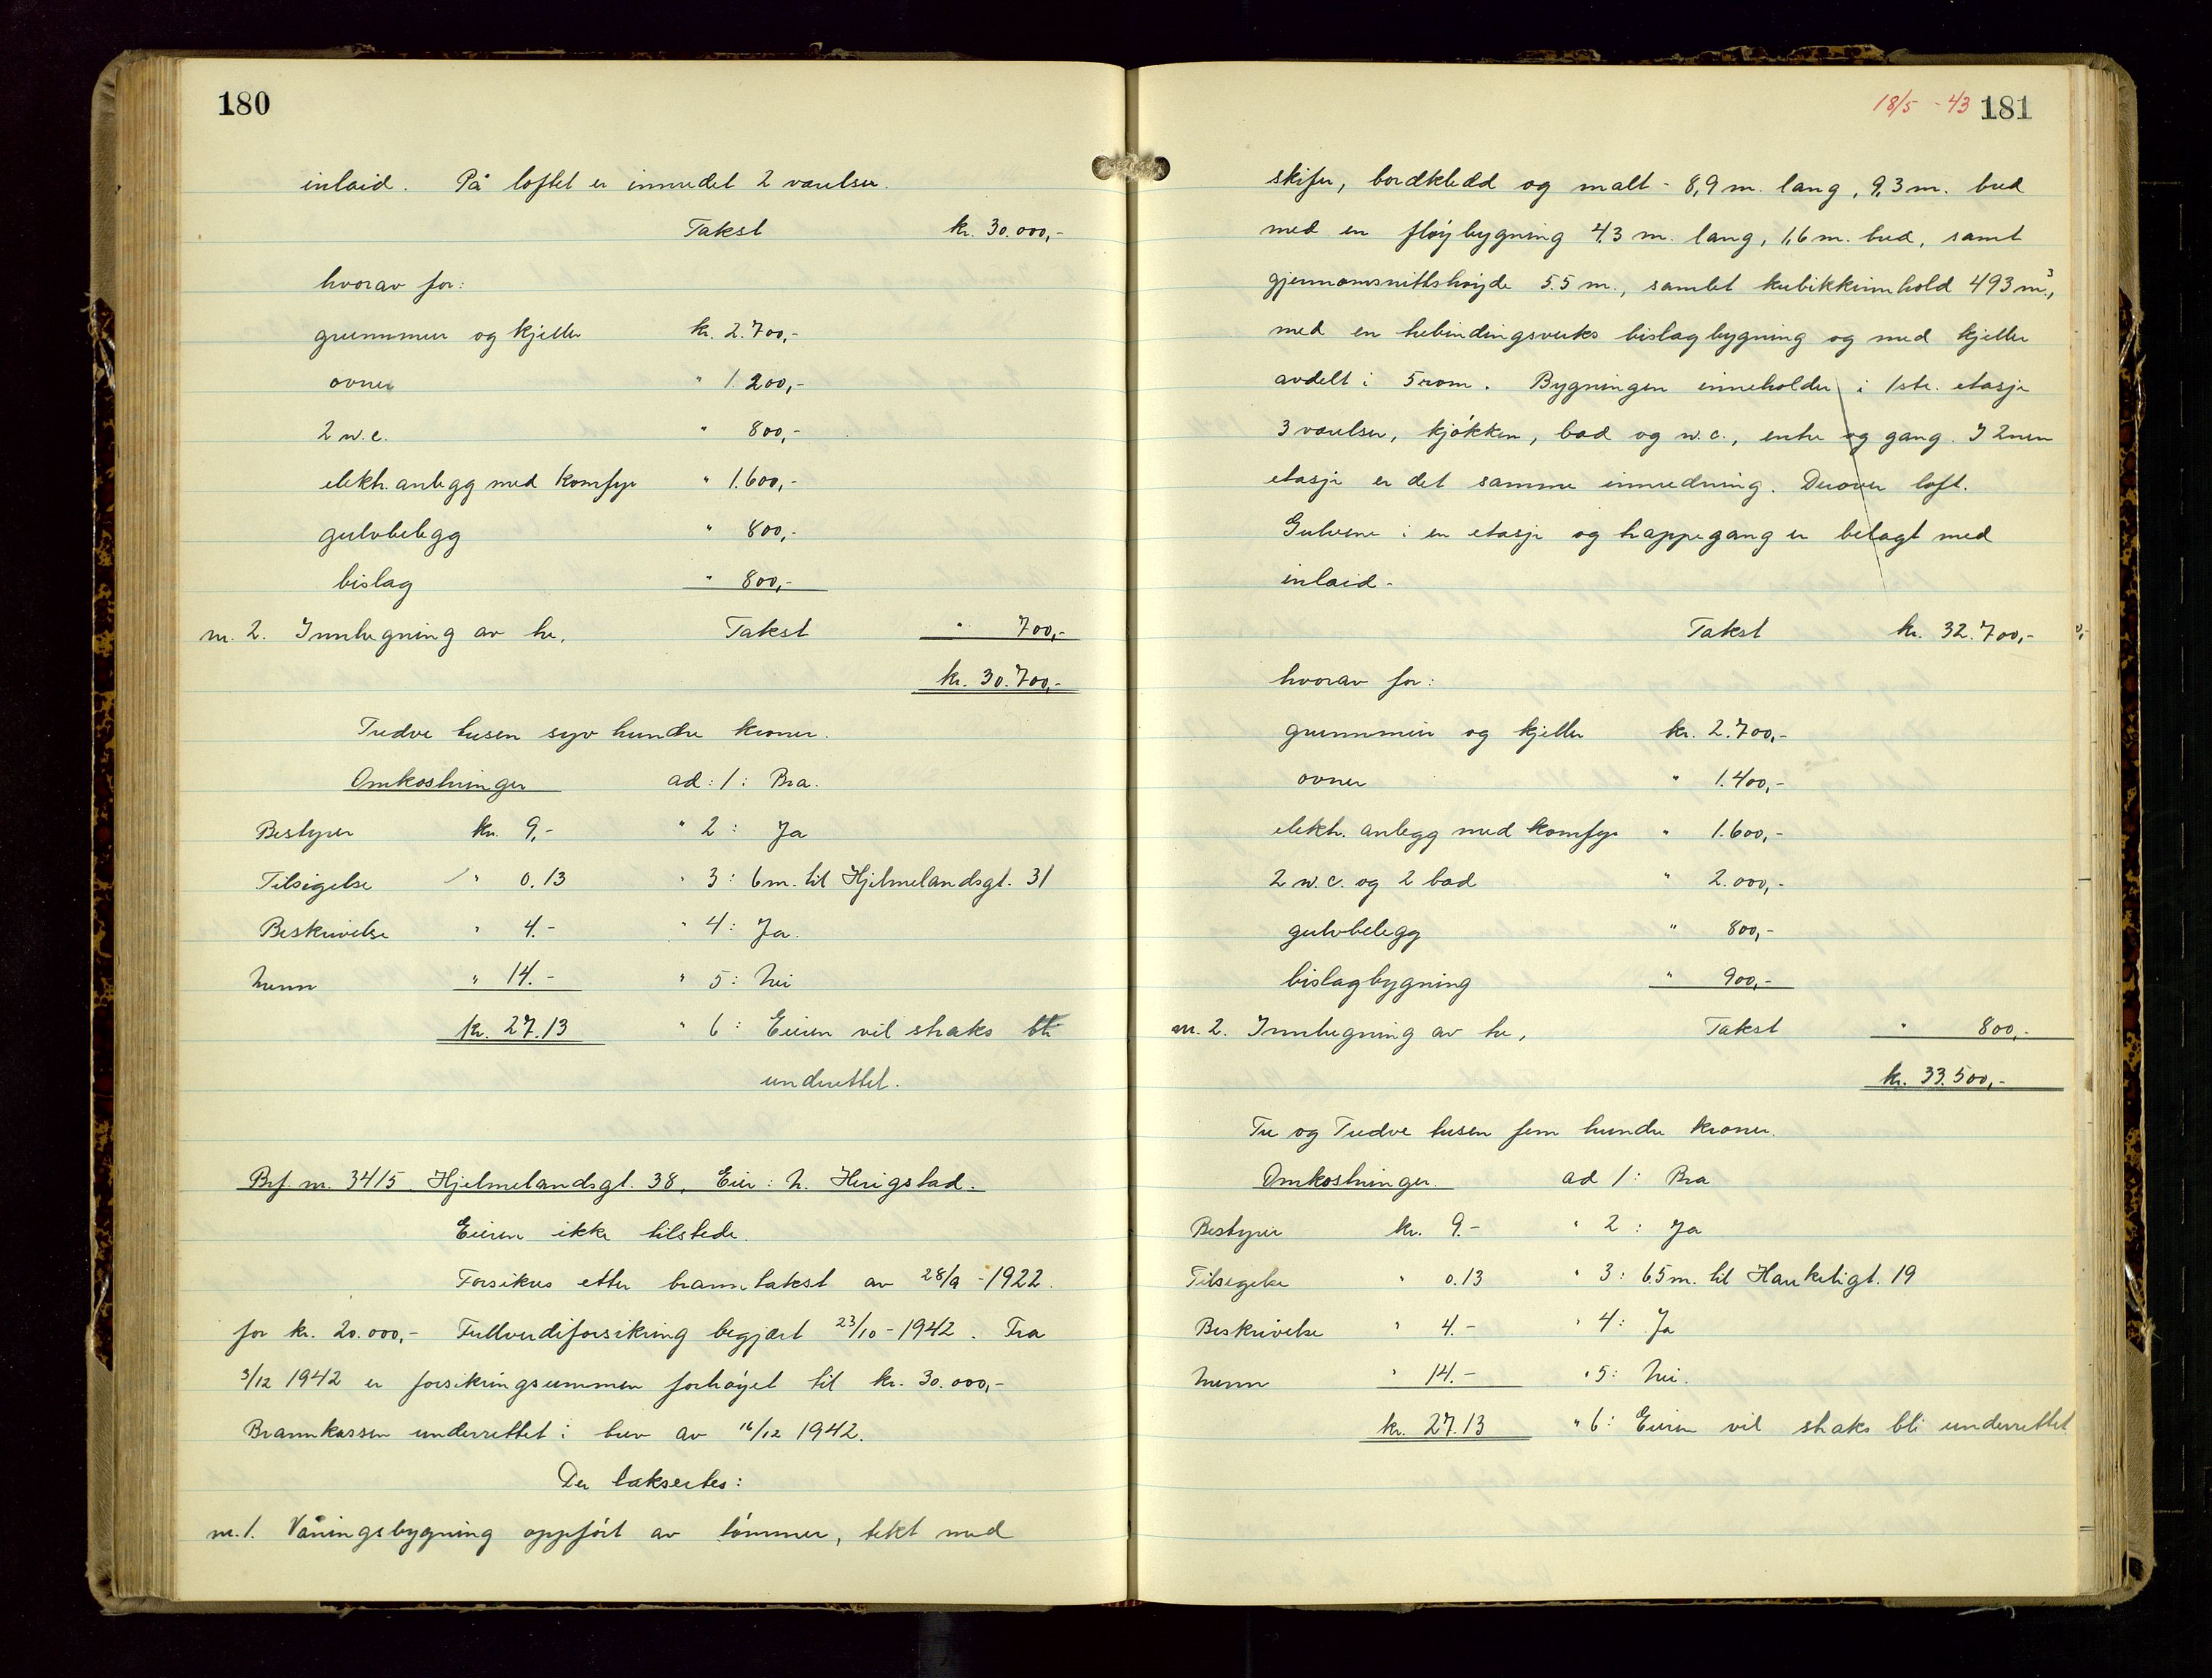 180
inlaid. På loftet er innredet 2 værelser.
Takst kr. 30.000,-
hvorav for:
grunnmur og kjeller kr. 2.700,-
ovner " 1.200,-
2 w.c. " 800,-
elektr. anlegg med komfyr " 1.600,-
gulvbelegg " 800,-
bislag " 800,-
nr. 2. Innhegning av tre, Takst " 700,-
kr. 30.700,-
Tredve tusen syv hundre kroner.
Omkostninger ad: 1: Bra.
Bestyrer kr. 9,- " 2: Ja
Tilsigelse " 0.13 " 3: 6m. til Hjelmelandsgt. 31
Beskrivelse " 4.- " 4: Ja.
Menn " 14.- " 5: Nei
kr. 27.13 " 6: Eieren vil straks bli
underrettet.
Brf nr. 3415 Hjelmelandsgt. 38, Eier: N. Herigstad.
Eieren ikke tilstede.
Forsikres etter branntakst av 28/9 - 1922.
for kr. 20.000,- Fullverdiforsikring begjært 23/10 - 1942. Fra
3/12 1942 er forsikringsummen forhøyet til kr. 30.000,-
Brannkassen underrettet i brev av 16/12 1942.
Der taksertes:
nr. 1. Våningsbygning oppført av tømmer, tekt med
18/5 - 43 181
skifer, bordkledd og malt - 8,9 m. lang, 9,3 m. bred
med en fløybygning 4,3 m. lang, 1,6 m. bred, samt
gjennomsnittshøyde 5.5 m., samlet kubikkinnhold 493 m³,
med en trebindingsverks bislagbygning og med kjeller
avdelt i 5 rom. Bygningen inneholder i 1ste. etasje
3 værelser, kjøkken, bad og w.c., entre og gang. I 2nen
etasje er det samme innredning. Derover loft.
Gulvene i en etasje og trappegang er belagt med
inlaid.
Takst kr. 32.700,-
hvorav for:
grunnmur og kjeller kr. 2.700,-
ovner " 1.400,-
elektr. anlegg med komfyr " 1.600,-
2 w.c. og 2 bad " 2.000,-
gulvbelegg " 800,-
bislagbygning " 900,-
nr. 2. Innhegning av tre, Takst " 800,-
kr. 33.500,-
Tre og Tredve tusen fem hundre kroner.
Omkostninger. ad 1: Bra
Bestyrer kr. 9.- " 2: Ja
Tilsigelse " 0.13 " 3: 6.5 m. til Haukeligt. 19
Beskrivelse " 4.- " 4: Ja
Menn " 14.- " 5: Nei.
kr. 27.13 " 6: Eieren vil straks bli underrettet